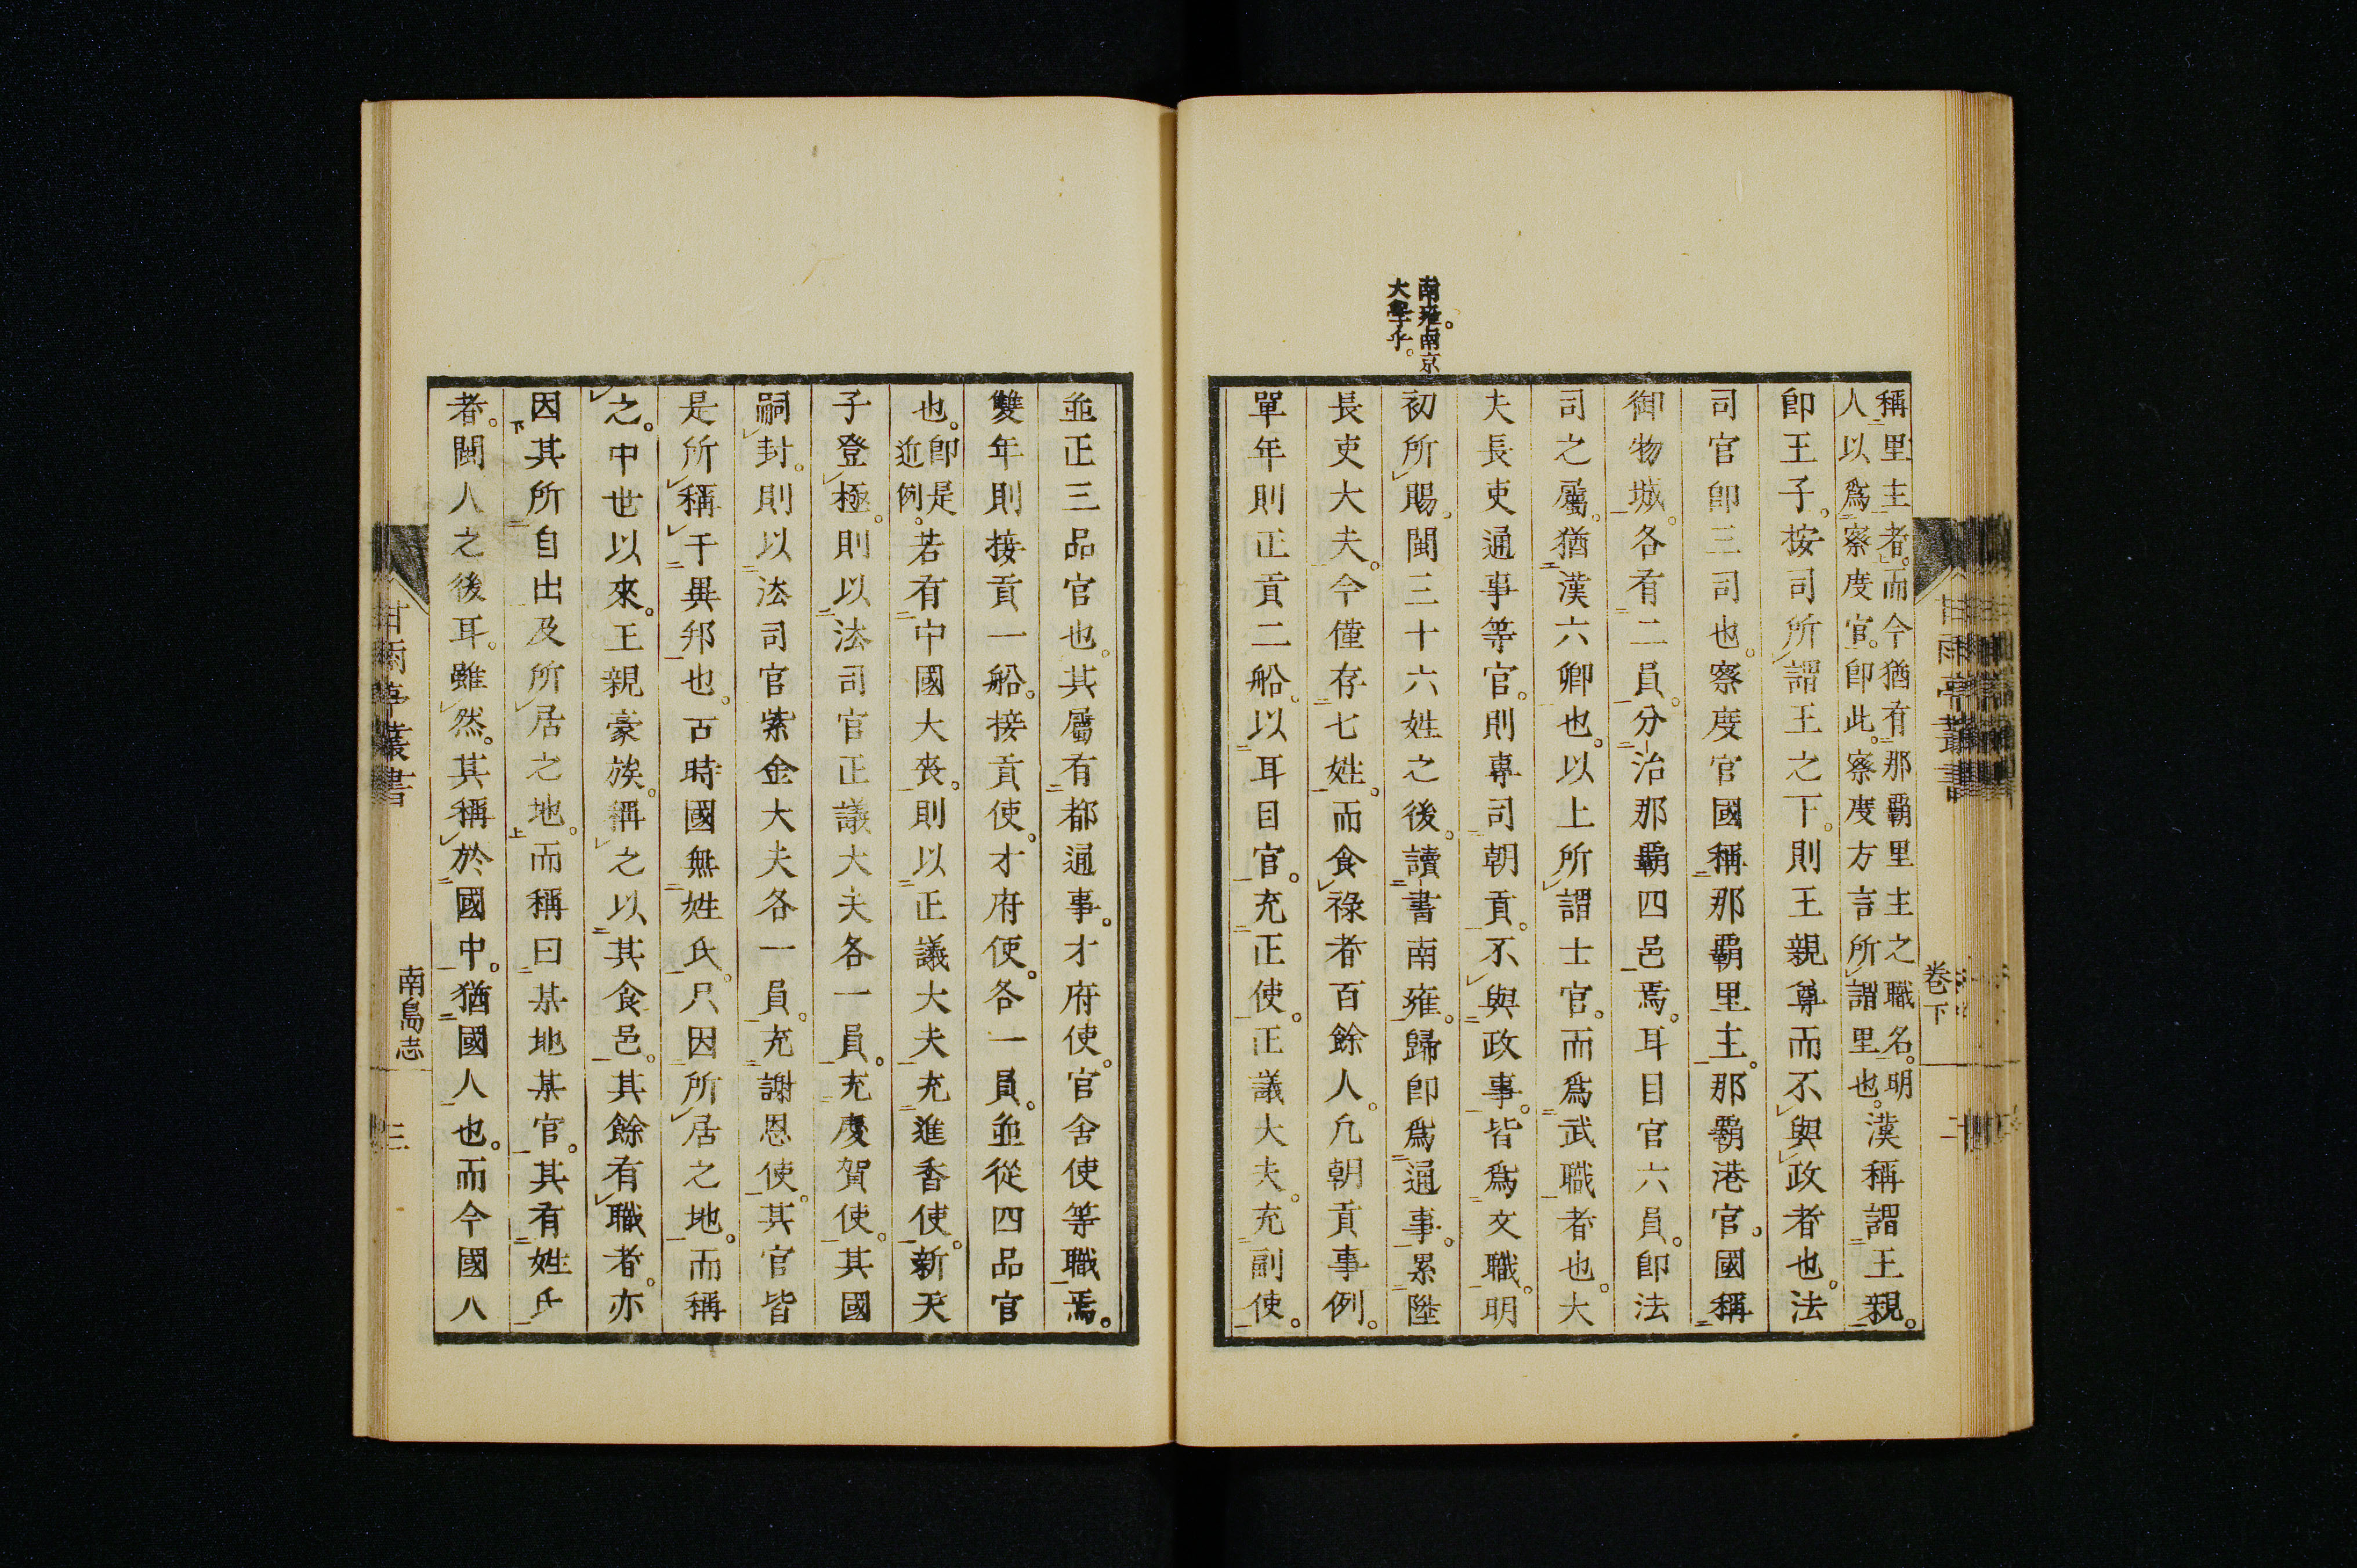 南雍。南京
大學乎。
稱里主者。而今猶有那霸里主之職名。明
人以爲察度官。卽此。察度方言所謂里也。漢稱謂王親。
卽王子。按司所謂王之下。則王親尊而不與政者也。法
司官卽三司也。察度官國稱那霸里主。那霸港官。國稱
御物城。各有二員。分治那霸四邑焉。耳目官六員。卽法
司之屬。猶漢六卿也。以上所謂士官。而爲武職者也。大
夫長吏通事等官。則專司朝貢。不與政事。皆爲文職。明
初所賜。閩三十六姓之後。讀書南雍。歸卽爲通事。累陞
長吏大夫。今僅存七姓。而食祿者百餘人。凡朝貢事例。
單年則正貢二船。以耳目官。充正使。正議大夫。充副使。
卷下
並正三品官也。其屬有都通事。才府使。官舍使等職焉。
雙年則接貢一船。接貢使。才府使。各一員。並從四品官
也。卽是近例。若有中國大喪。則以正議大夫充進香使。新天
子登極。則以法司官正議大夫各一員。充慶賀使。其國
嗣封。則以法司官紫金大夫各一員。充謝恩使。其官皆
是所稱于異邦也。古時國無姓氏。只因所居之地。而稱
之。中世以來。王親豪族。稱之以其食邑。其餘有職者。亦
因其所自出及所居之地。而稱曰某地某官。其有姓氏
者。閩人之後耳。雖然。其稱於國中。猶國人也。而今國人
甘雨亭叢書
南島志
三